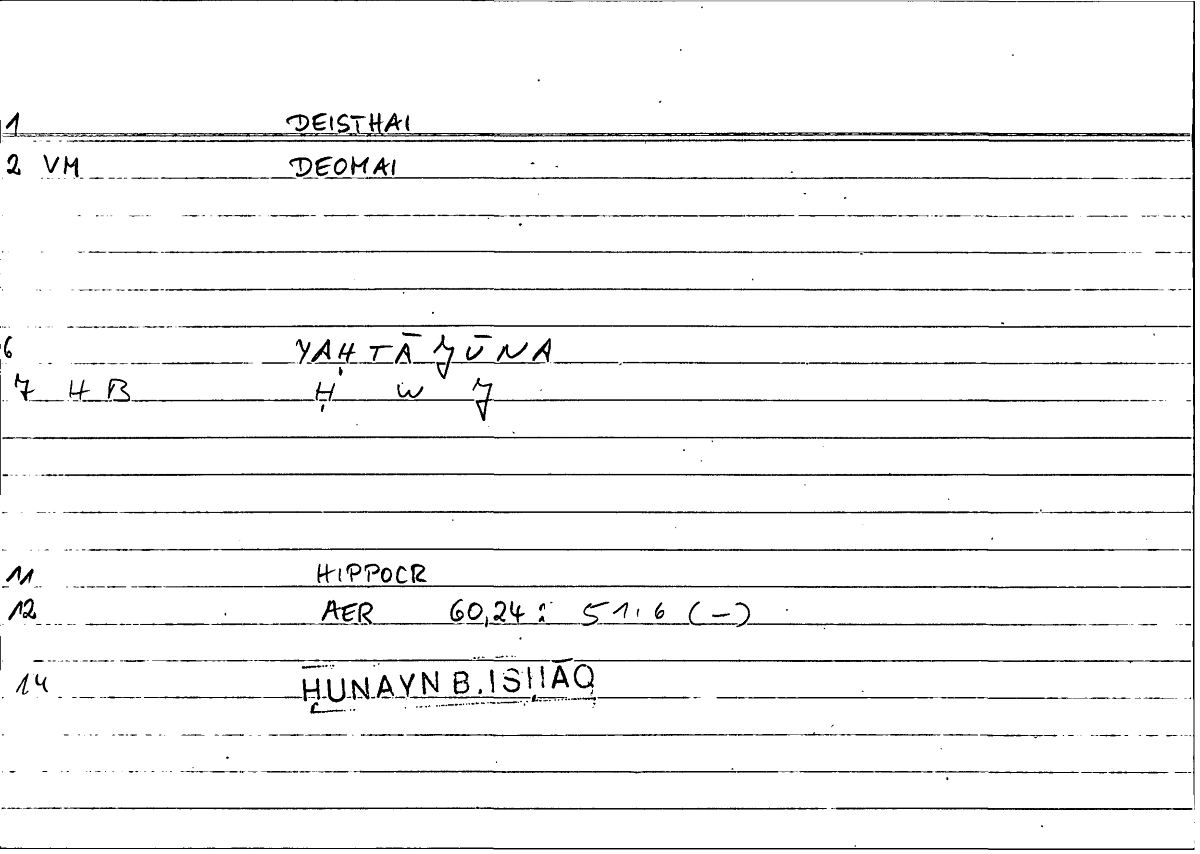 1 DEISTHAI
2 VM DEOMAI
6 YAḤTĀJŪNA
7 HB Ḥ W J
11 HIPPOCR
12 AER 60,24 : 51,6 (–)
14 ḤUNAYN B. ISḤĀQ